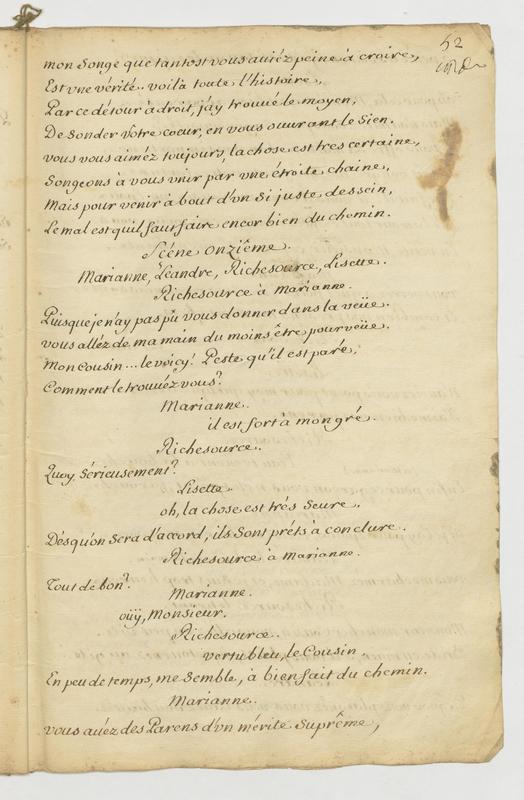 52
mon Songe que tantost vous auiéz peine à croire,
Est vne vérité. voilà toute l'histoire,
Par ce détour àdroit, j'ay trouué le moyen,
De Sonder votre coeur, en vous ouurant le Sien.
vous vous aiméz toujours, la chose est tres certaine,
Songeons à vous vnir par vne étroite chaine,
Mais pour venir à bout d'vn Si juste dessein,
Le mal est quil faut faire encor bien du chemin.
Scéne onziême.
Marianne, Leandre, Richesource, Lisette.
Richesource à Marianne.
Puisque je n'ay pas pû vous donner dans la veüe.
vous alléz de ma main du moins être pourveüe.
Mon Cousin... le voicy! Peste qu'il est paré,
Comment le trouuéz vous?
Marianne.
il est fort à mon gré.
Richesource.
Quoy Sérieusement?
Lisette.
oh, la chose est trés Seure,
Dés qu'on Sera d'accord, ils Sont prêts à conclure.
Richesource à Marianne.
Tout de bon?
Marianne.
oüÿ, Monsieur.
Richesource.
vertubleu, le Cousin
En peu de temps, me Semble, à bien fait du chemin.
Marianne.
vous auéz des Parens d'vn mérite Suprême,